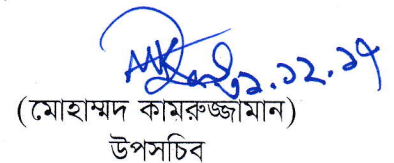 ৩১.১২.১৭
(মোহাম্মদ কামরুজ্জামান)
উপসচিব